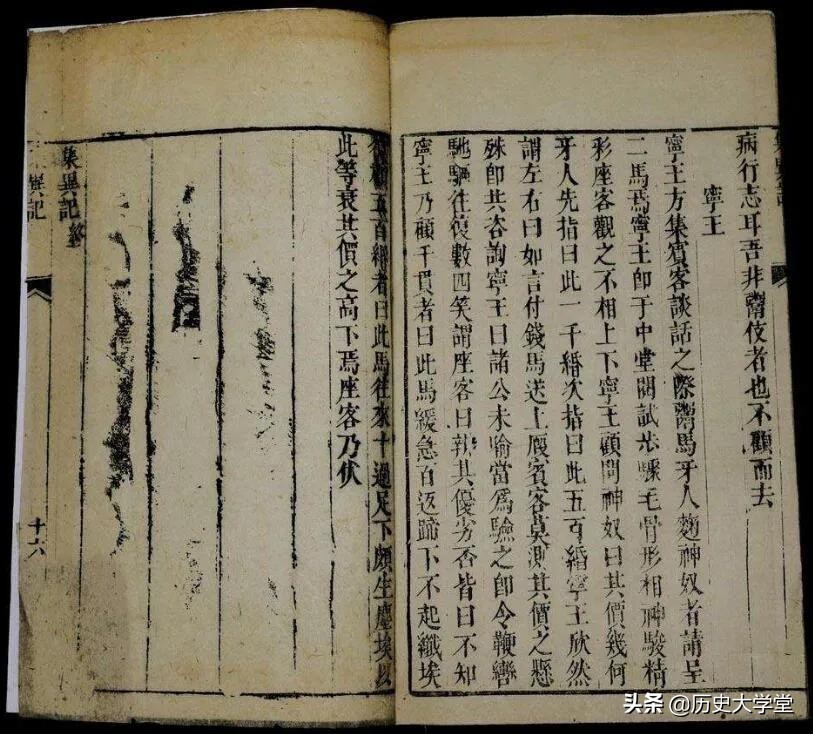 病行志耳吾非鬻伎者也不顧而去
寧王
寧王方集賓客談話之際鬻馬牙人麴神奴者請呈
二馬焉寧王卽于中堂閱試步驟毛骨形相神駿精
彩座客觀之不相上下寧王顧問神奴曰其價幾何
牙人先指曰此一千緡次指曰此五百緡寧王欣然
謂左右曰如言付錢馬送上廄賓客莫測其價之懸
殊卽共咨詢寧王曰諸公未喻當爲驗之卽令鞭轡
馳驅往復數四笑謂座客曰辨其優劣否皆曰不知
寧王乃顧千貫者曰此馬緩急百返蹄下不起纖埃
顧五百緡者曰此馬往來十過足下頗生塵埃以
此等衰其價之高下焉座客乃伏
集異記終
異記
十六
头条 @历史大学堂